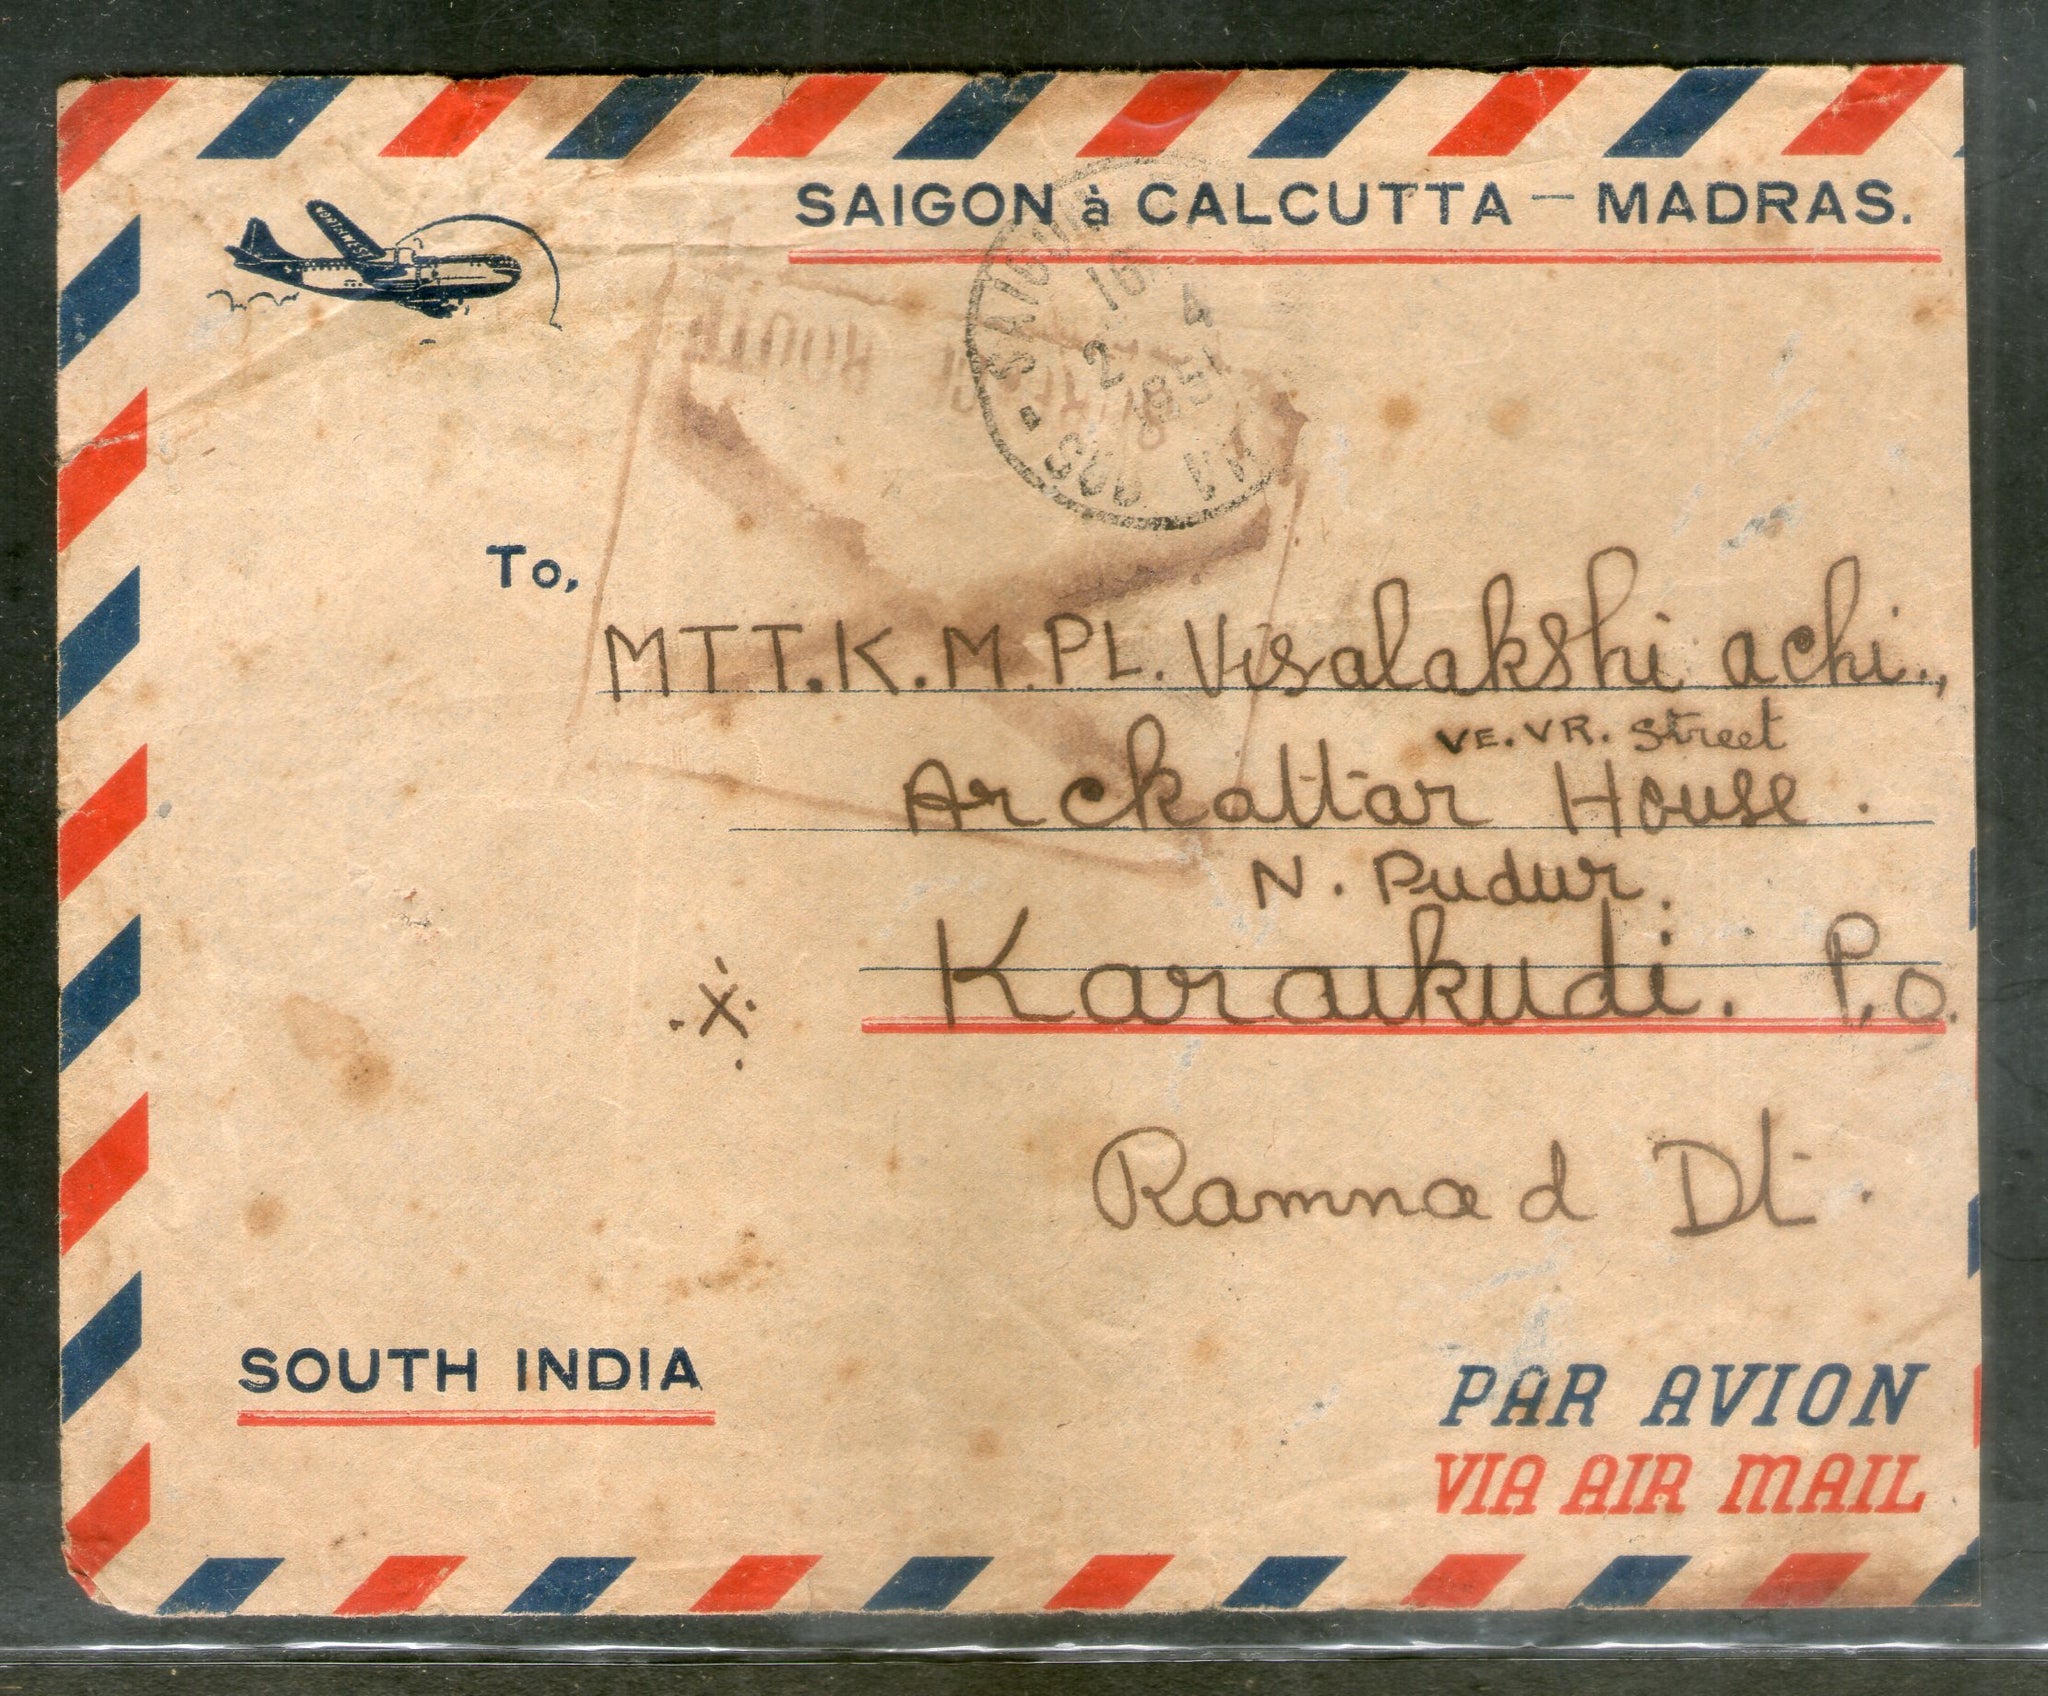 SAIGON à CALCUTTA – MADRAS.
NORTHWEST
SAIGON
2 4
SUD
To,
MTT.K.M.PL. Visalakshi achi.,
VE.VR. Street
Arckattar House.
N. Pudur.
Karaikudi. P.O.
Ramnad Dt.
SOUTH INDIA
PAR AVION
VIA AIR MAIL